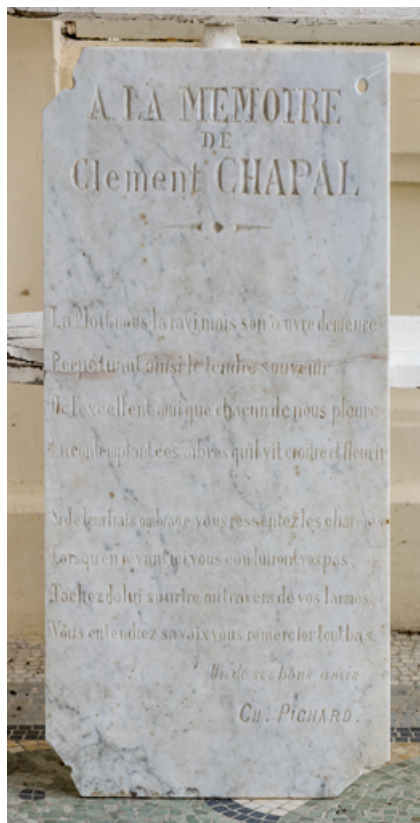 A LA MEMOIRE
DE
Clement CHAPAL
La Mort nous l'a ravi, mais son œuvre demeure
Perpétuant ainsi le tendre souvenir
De l'excellent ami que chacun de nous pleure
En contemplant ces arbres qu'il vit croître et fleurir
Si de leur frais ombrage vous ressentez les charmes
Lorsqu'en rêvant ici vous conduiront vos pas
Tachez de lui sourire au travers de vos larmes
Vous entendrez sa voix vous remercier tout bas.
Un de ses bons amis
CH. PICHARD.